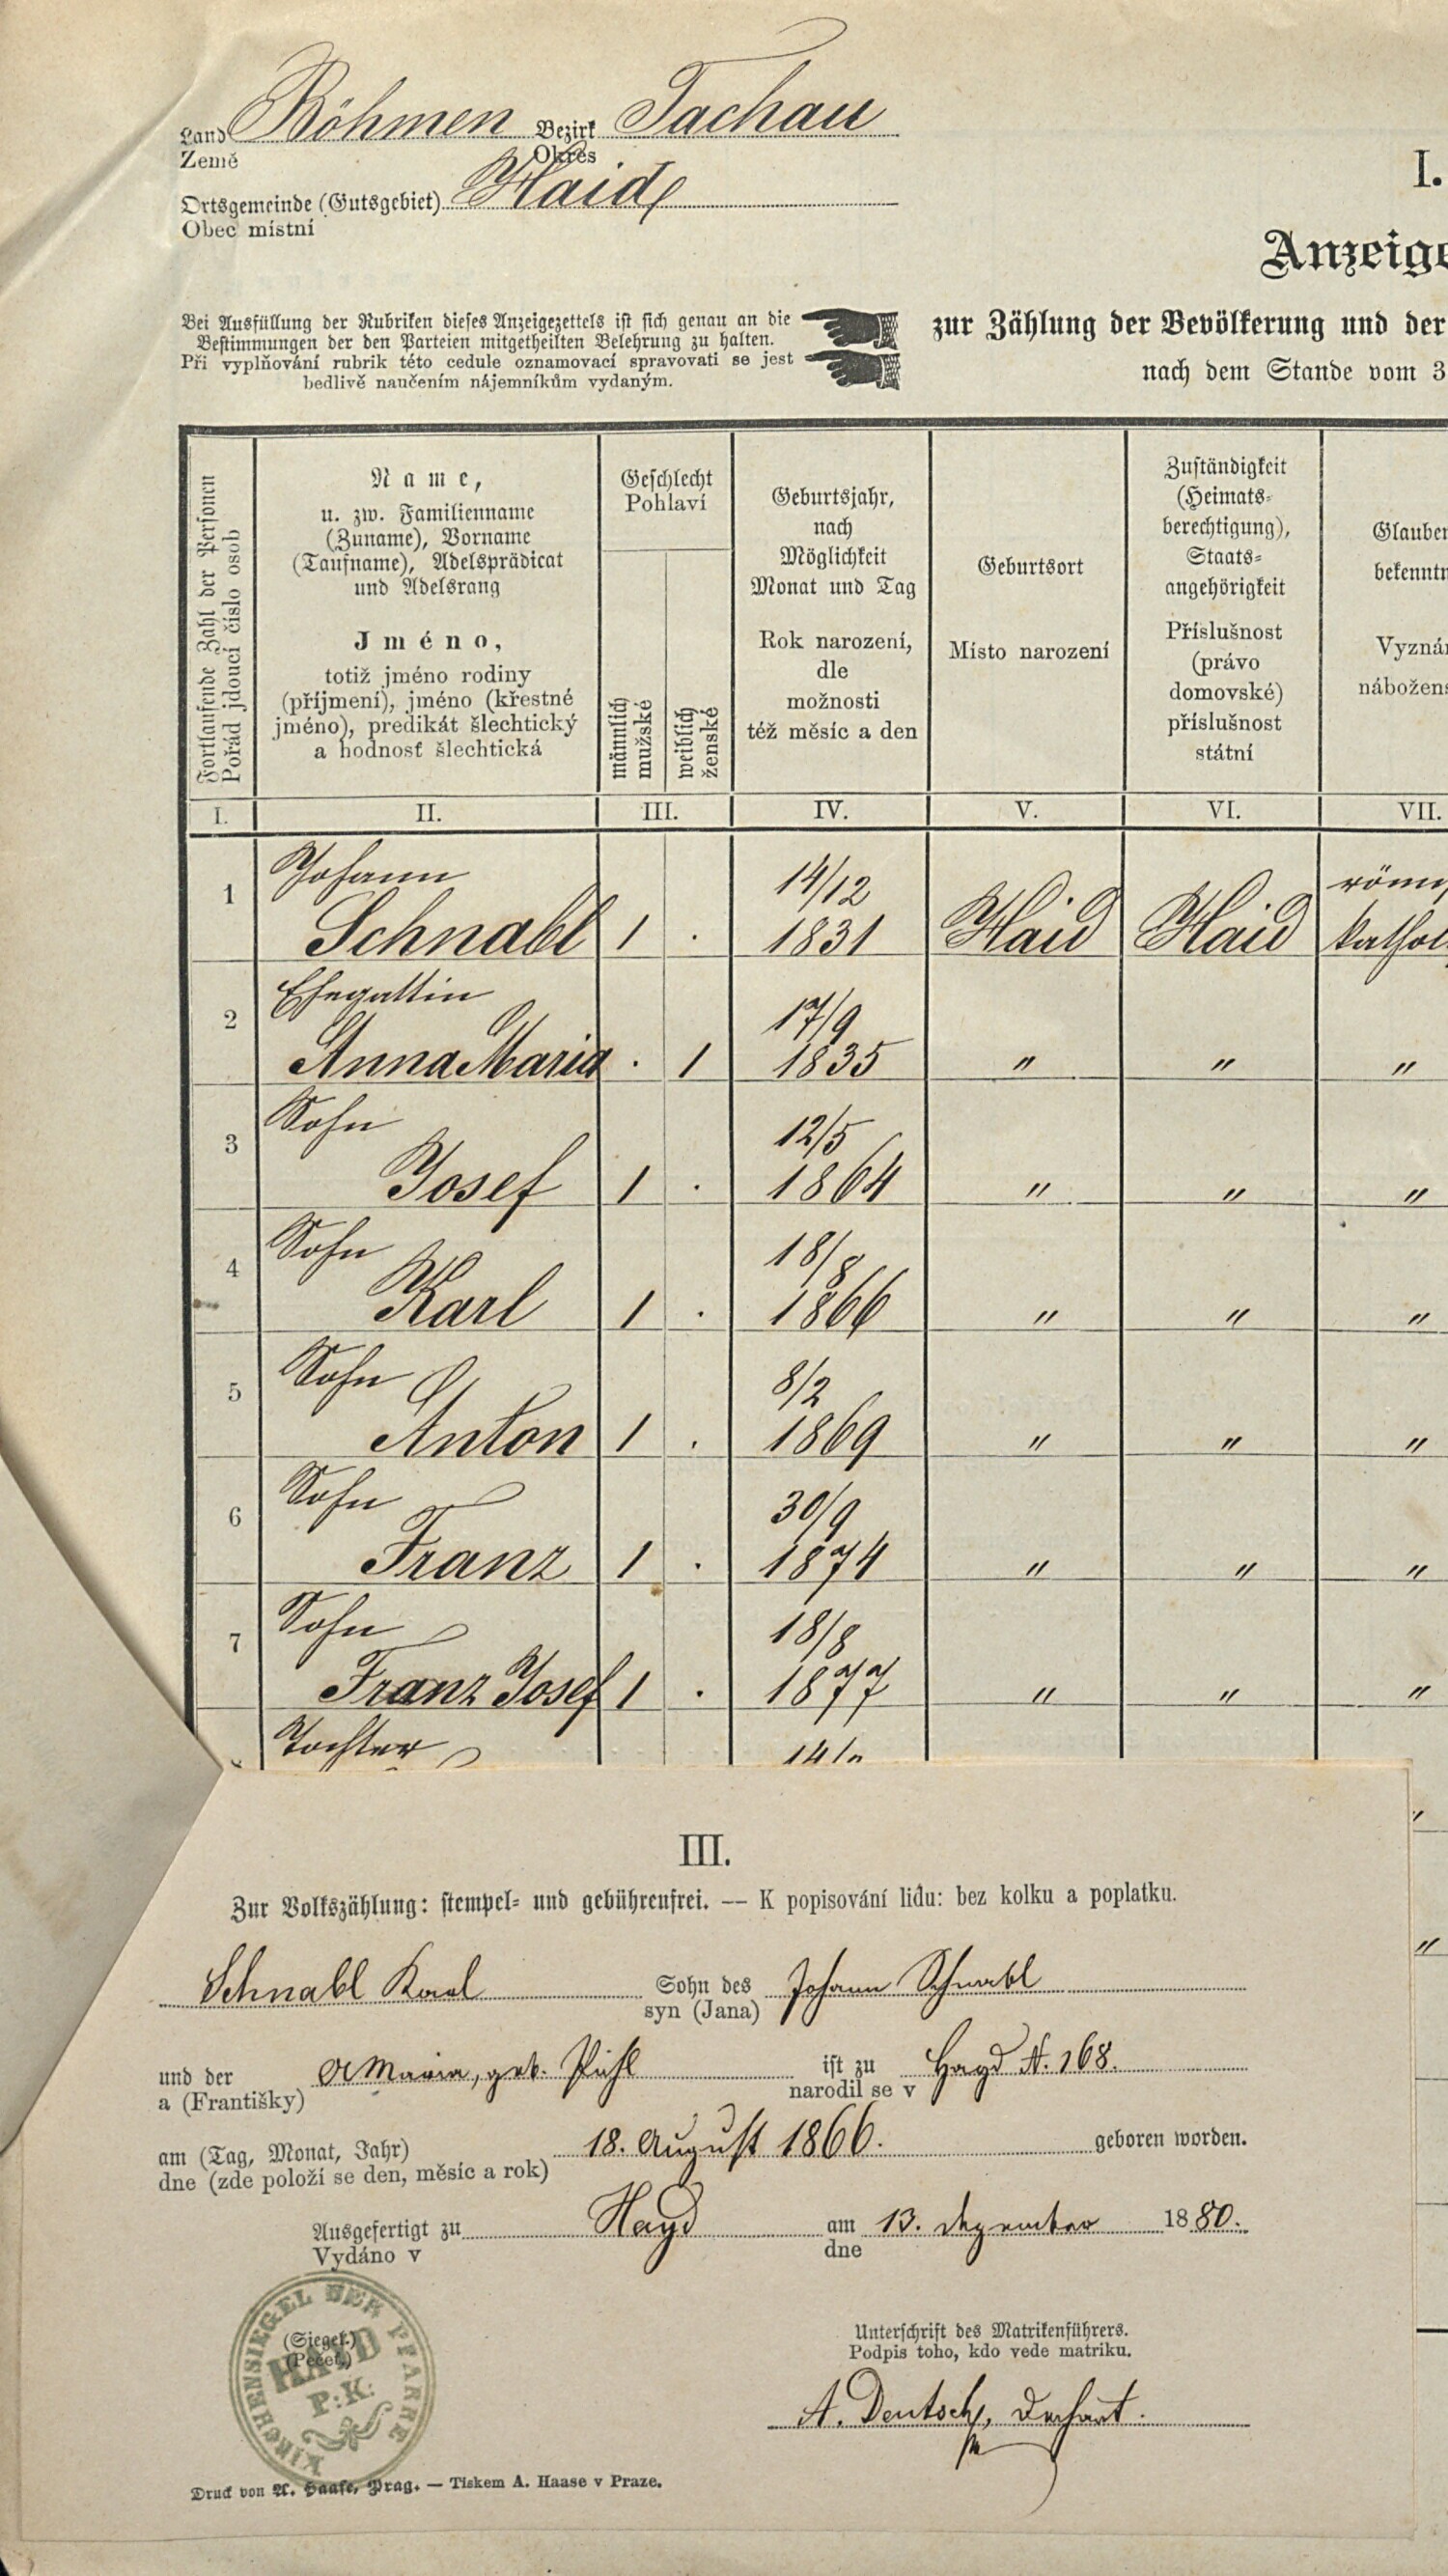 Land Böhmen Bezirk Tachau
Země Okres
Ortsgemeinde (Gutsgebiet) Haid
Obec místní
I.
Anzeige
Bei Ausfüllung der Rubriken dieses Anzeigezettels ist sich genau an die
Bestimmungen der den Parteien mitgetheilten Belehrung zu halten.
Při vyplňování rubrik této cedule oznamovací spravovati se jest
bedlivě naučením nájemníkům vydaným.
zur Zählung der Bevölkerung und der
nach dem Stande vom 3
Fortlaufende Zahl der Personen
Pořád jdoucí číslo osob
Name,
u. zw. Familienname
(Zuname), Vorname
(Taufname), Adelsprädicat
und Adelsrang
Jméno,
totiž jméno rodiny
(příjmení), jméno (křestné
jméno), predikát šlechtický
a hodnosť šlechtická
Geschlecht
Pohlaví
männlich
mužské
weiblich
ženské
Geburtsjahr,
nach
Möglichkeit
Monat und Tag
Rok narození,
dle
možnosti
též měsíc a den
Geburtsort
Místo narození
Zuständigkeit
(Heimats-
berechtigung),
Staats-
angehörigkeit
Příslušnost
(právo
domovské)
příslušnost
státní
Glauben
bekenntn
Vyznán
nábožens
I. II. III. IV. V. VI. VII.
Johann 14/12 röm,
1 Schnabl 1 . 1831 Haid Haid kathol.
Ehegattin 17/9
2 Anna Maria . 1 1835 " " "
Sohn 12/5
3 Josef 1 . 1864 " " "
Sohn 18/8
4 Karl 1 . 1866 " " "
Sohn 8/2
5 Anton 1 . 1869 " " "
Sohn 30/9
6 Franz 1 . 1874 " " "
Sohn 18/8
7 Franz Josef 1 . 1877 " " "
Tochter
III.
Zur Volkszählung: stempel- und gebührenfrei. — K popisování lidu: bez kolku a poplatku.
Schnabl Karl Sohn des Johann Schnabl
syn (Jana)
und der A Maria, geb. Pühl ist zu Hayd N. 168.
a (Františky) narodil se v
am (Tag, Monat, Jahr) 18. August 1866. geboren worden.
dne (zde položí se den, měsíc a rok)
Ausgefertigt zu Hayd am 13. Dezember 1880.
Vydáno v dne
(Siegel.)
(Pečeť.)
KIRCHENSIEGEL DER PFARRE
HAYD
P:K:
Unterschrift des Matrikenführers.
Podpis toho, kdo vede matriku.
A. Deutsch, Dechant.
Druck von A. Haase, Prag. — Tiskem A. Haase v Praze.